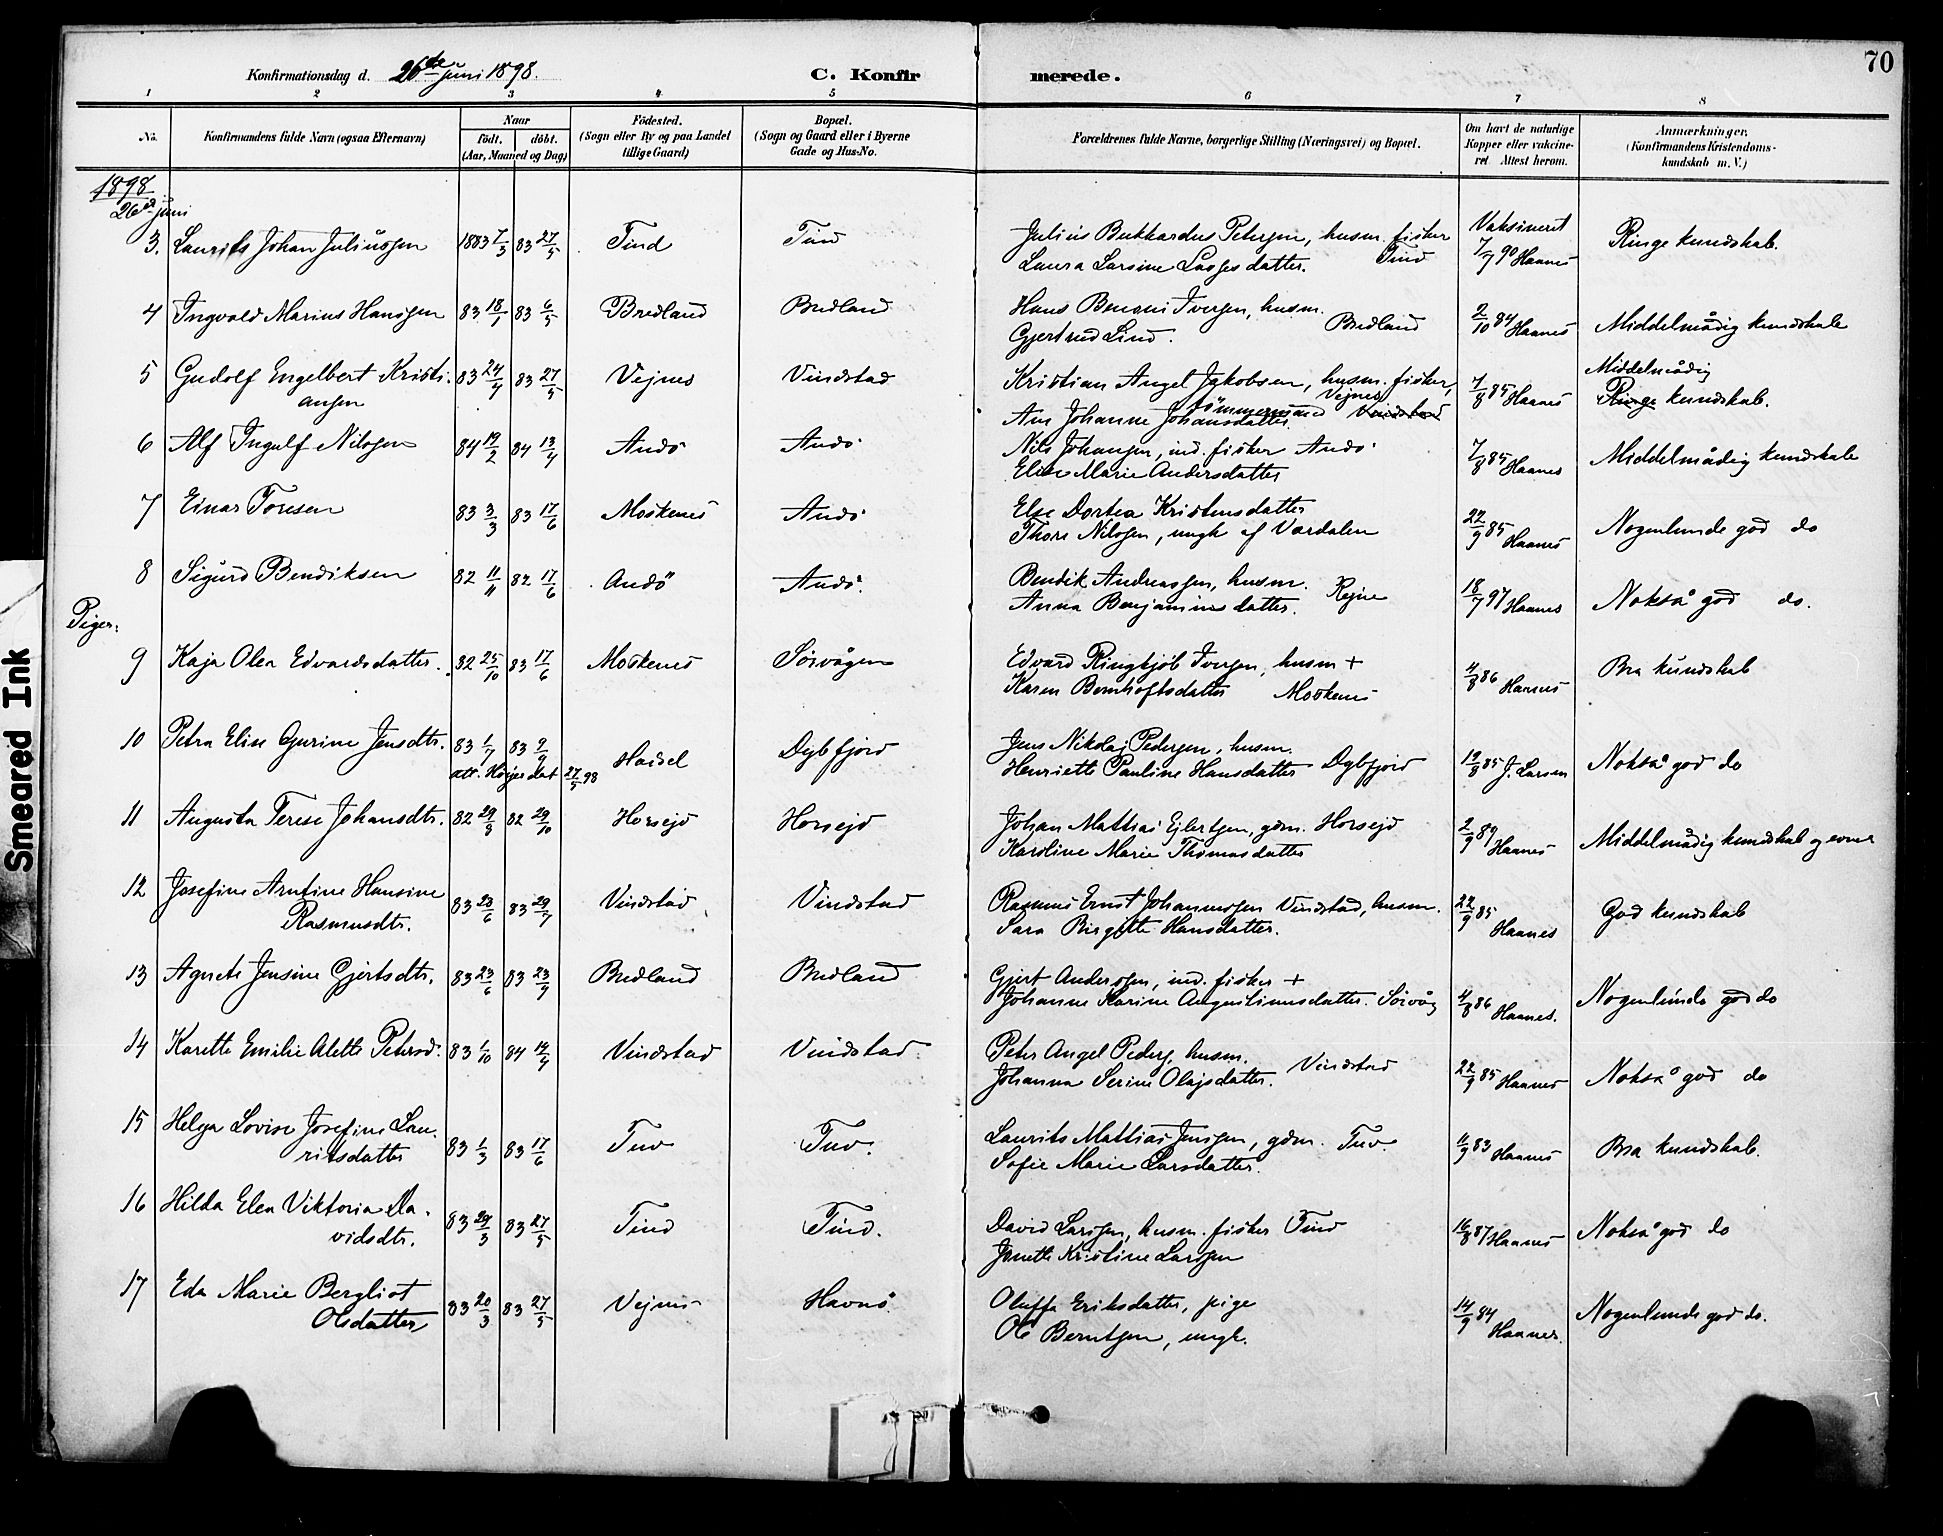 70
Konfirmationsdag d. 26de juni 1898. C. Konfirmerede.
1 2 3 4 5 6 7 8
No. Konfirmandens fulde Navn (ogsaa Efternavn) Naar födt. döbt. (Aar, Maaned og Dag) Födested. (Sogn eller By og paa Landet tillige Gaard) Bopæl. (Sogn og Gaard eller i Byerne Gade og Hus-No. Forældrenes fulde Navne, borgerlige Stilling (Næringsvei) og Bopæl. Om havt de naturlige Kopper eller vakcineret Attest herom. Anmærkninger. (Konfirmandens Kristendomskundskab m. V.)
1898
26de juni
3. Laurits Johan Juliussen 1883 7/3 83 27/5 Tind Tind Julius Bukkardus Petersen, husm. fisker Tind Vaksineret
Laura Larsine Lassesdatter. 7/7 90 Haanes Ringe kundskab.
4 Ingvald Marius Hanssen 83 18/1 83 6/5 Bredland Bredland Hans Benoni Iversen, husm. Bredland
Gjertrud Lind. 2/10 84 Haanes Middelmådig kundskab
5 Gudolf Engelbert Kristi- 83 24/4 83 27/5 Vejnes Vindstad Kristian Angel Jakobsen, husm. fisker, Middelmådig
ansen tömmermand Vejnes Vindstad 7/8 85 Haanes Ringe kundskab.
Ane Johanne Johansdatter
6 Alf Ingulf Nilssen 84 19/2 84 13/4 Andö Andö Nils Johansen, ind. fisker Andö
Elise Marie Andersdatter 7/8 85 Haanes Middelmådig kundskab
7 Einar Toresen 83 3/3 83 17/6 Moskenes Andö Else Dortea Kristensdatter
Thore Nilssen, ungk. af Værdalen 22/9 85 Haanes Nogenlunde god do
8 Sigurd Bendiksen 82 11/11 82 17/6 Andö Andö. Bendik Andreassen, husm. Rejne
Anna Benjaminsdatter. 18/7 97 Haanes Nokså god do.
Piger:
9 Kaja Olea Edvardsdatter. 82 25/10 83 17/6 Moskenes Sörvågen Edvard Ringkjöb Iversen, husm +
Karen Bernhoftsdatter Moskenes 4/8 86 Haanes Bra kundskab
10 Petra Elise Gurine Jensdtr. 83 1/7 83 9/9 Hadsel Dybfjord Jens Nikolaj Pedersen, husm.
att. 27/5 98 Henriette Pauline Hansdatter Dybfjord 19/8 85 J. Larsen Nokså god do
11 Augusta Terese Johansdtr. 82 29/8 82 29/10 Horsejd Horsejd Johan Mattias Ejlertsen, gdm. Horsejd
Karoline Marie Thomasdatter 2/9 89 Haanes Middelmådig kundskab og evner
12 Josefine Arntine Hansine 83 23/6 83 29/7 Vindstad Vindstad Rasmus Ernst Johannessen Vindstad, husm.
Rasmusdtr. Sara Birgitte Hansdatter. 22/9 85 Haanes God kundskab
13 Agnete Jensine Gjertsdtr. 83 23/6 83 23/9 Bredland Bredland Gjert Anderssen, ind. fisker +
Johanne Karine Augustinusdatter. Sörvåg 4/8 86 Haanes. Nogenlunde god do
14 Karette Emilie Alette Petersd. 83 1/10 84 14/4 Vindstad Vindstad. Peter Angel Peders, husm. Vindstad
Johanna Serine Olajsdatter. 22/9 85 Haanes Nokså god do
15 Helga Lovise Josefine Lau- 83 1/3 83 17/6 Tuv Tuv. Laurits Mattias Jenssen, gdm. Tuv.
ritsdatter Sofie Marie Larsdatter. 11/9 83 Haanes Bra kundskab.
16 Hilda Elea Viktoria Da- 83 29/3 83 27/5 Tind Tind. David Larssen, husm. fisker Tind
vidsdtr. Jenette Kristine Larssen 16/8 87 Haanes Nokså god do
17 Eda Marie Bergliot 83 20/3 83 27/5 Vejnes Havnö. Oluffa Eriksdatter, pige
Olsdatter Ole Berntsen, ungk. 14/9 84 Haanes. Nogenlunde god do.
Smeared Ink